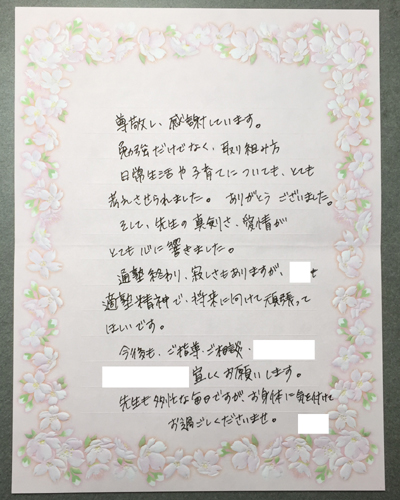 尊敬し、感謝しています。
勉強だけでなく、取り組み方
日常生活や子育てについても、とても
考えさせられました。ありがとうございました。
そして、先生の真剣さ、愛情が
とても心に響きました。
適塾終わり、寂しさもありますが、 せ
適塾精神で、将来に向けて頑張って
ほしいです。
今後も、ご指導・ご相談、
宜しくお願いします。
先生も多忙な毎日ですが、お身体に気を付けて
お過ごしくださいませ。